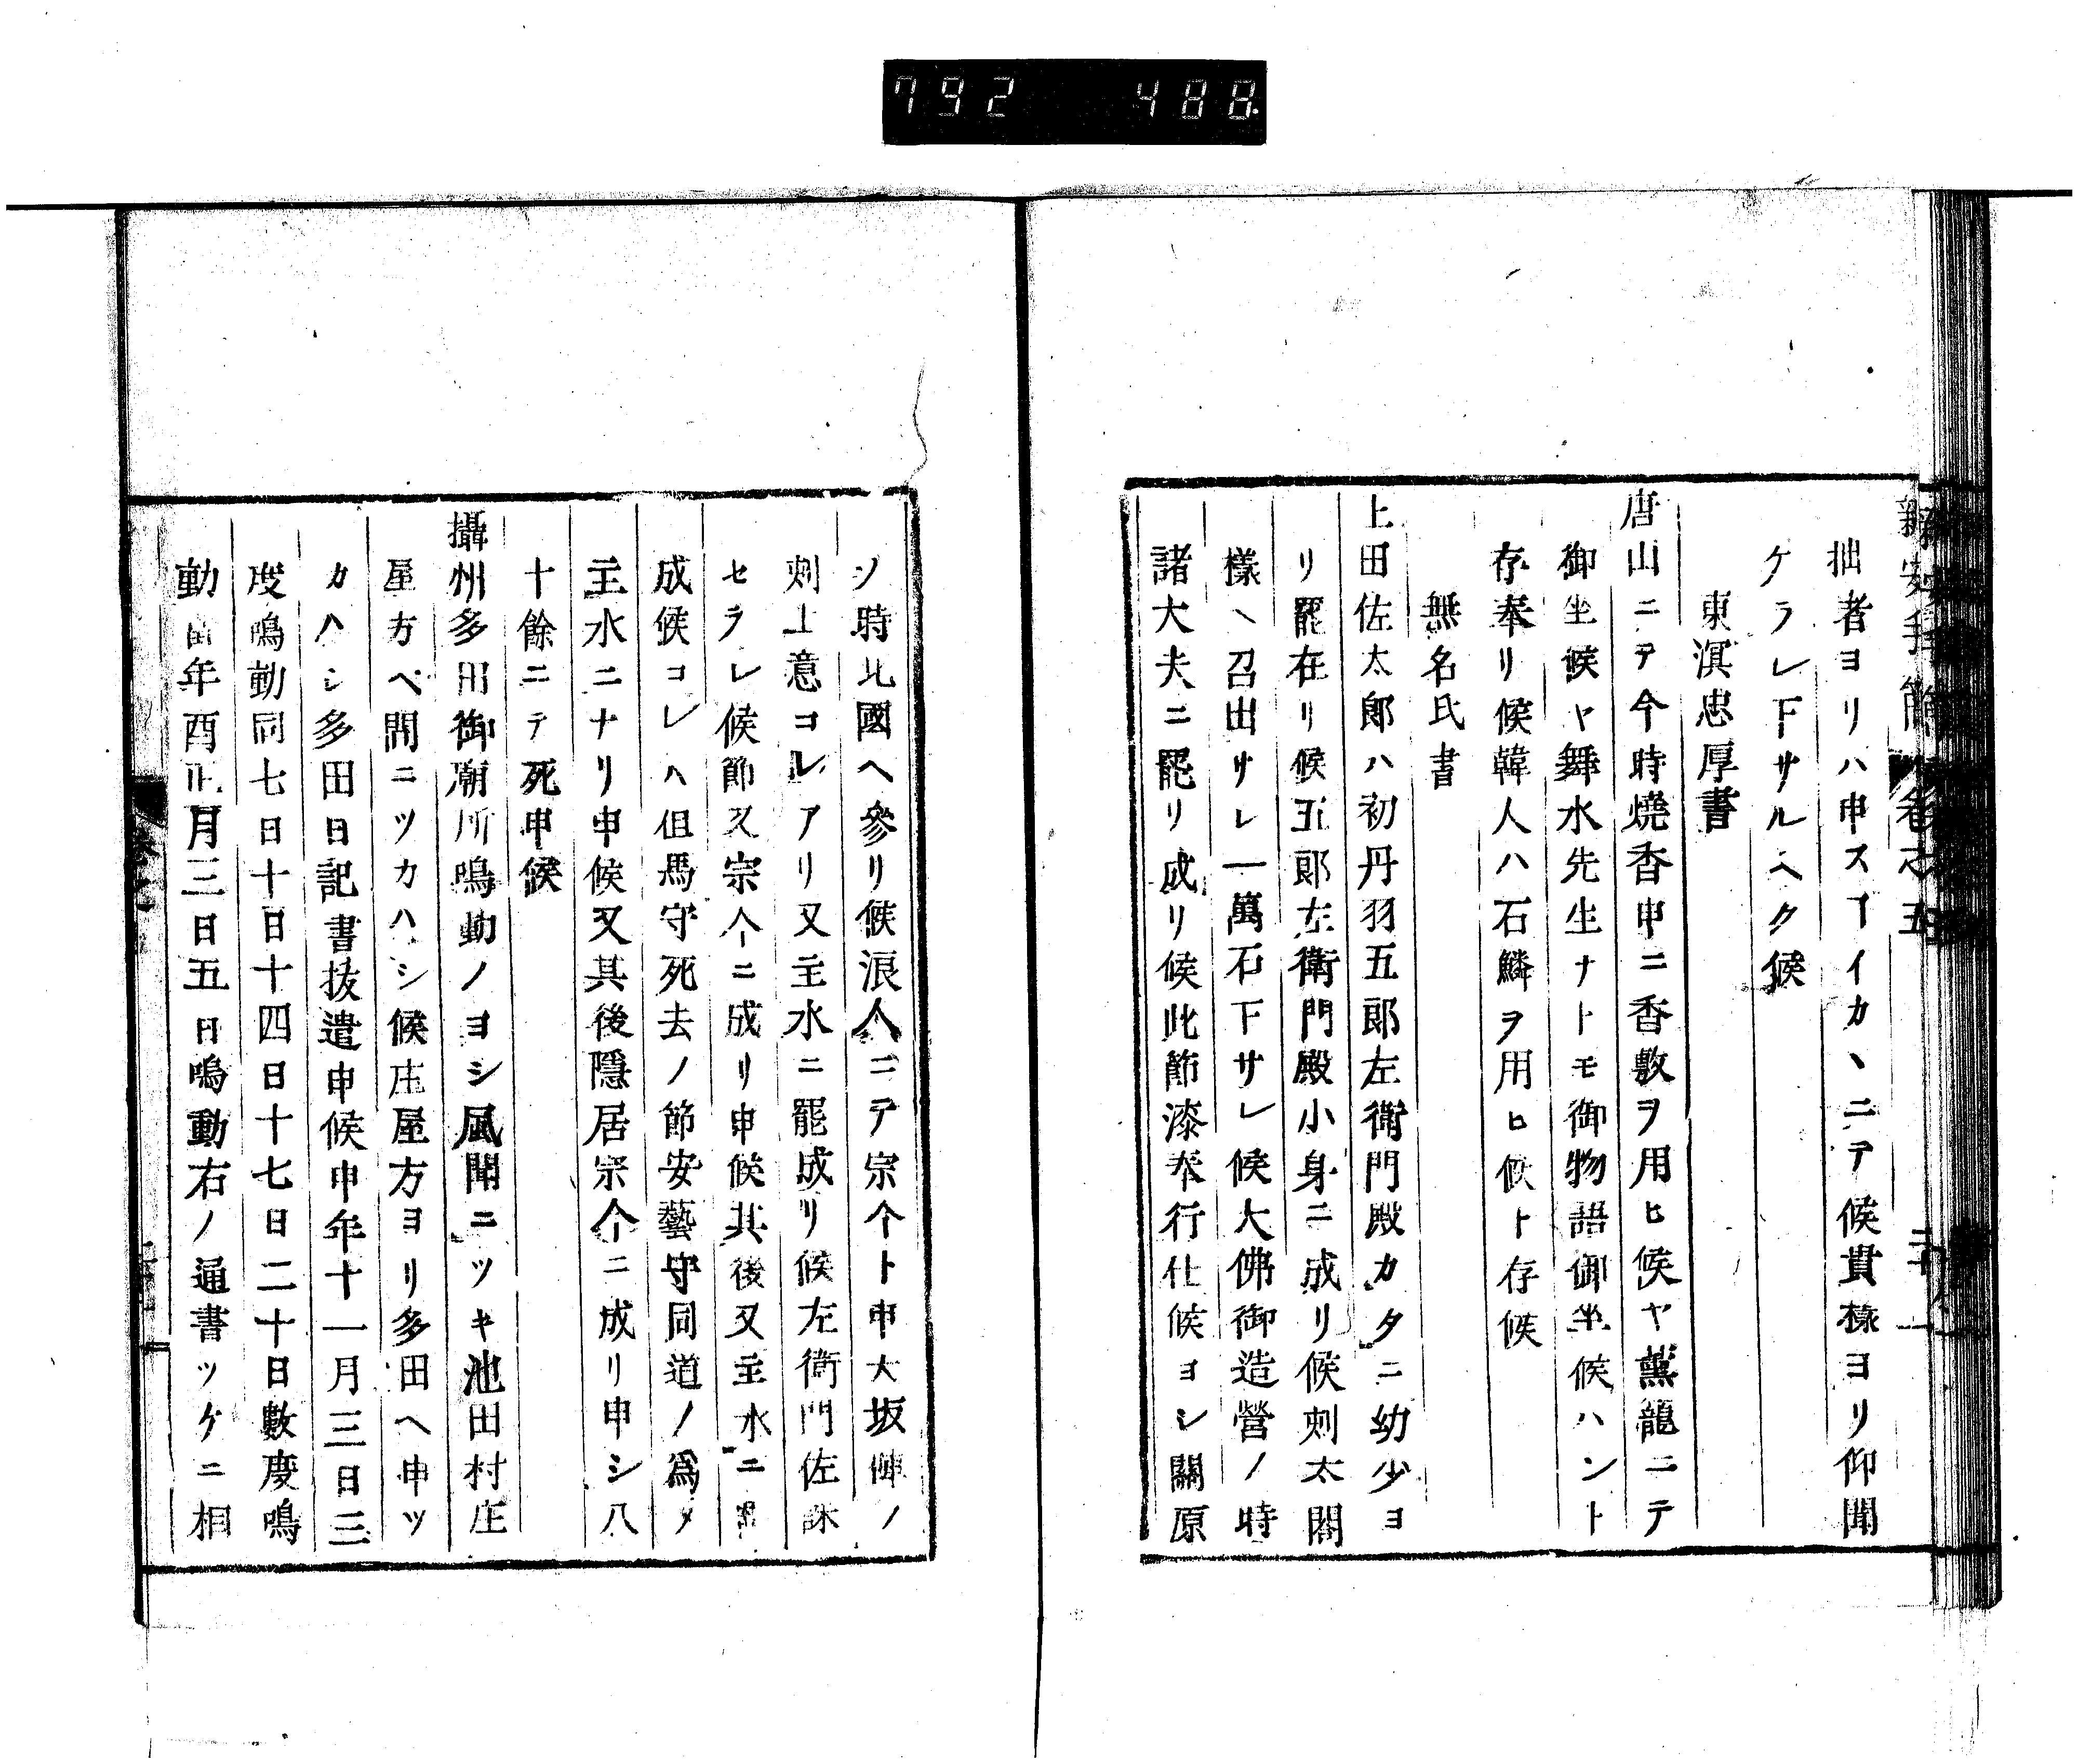 792 488
新安手簡 卷之五
拙者ヨリハ申スヿイカヽニテ候貴樣ヨリ仰聞
ケラレ下サルヘク候
東溟忠厚書
唐山ニテ今時燒香申ニ香敷ヲ用ヒ候ヤ薰籠ニテ
御坐候ヤ舞水先生ナトモ御物語御坐候ハント
存奉リ候韓人ハ石鱗ヲ用ヒ候ト存候
無名氏書
上田佐太郎ハ初丹羽五郎左衞門殿カタニ幼少ヨ
リ罷在リ候五郎左衞門殿小身ニ成リ候刻太閤
樣ヘ召出サレ一萬石下サレ候大佛御造營ノ時
諸大夫ニ罷リ成リ候此節漆奉行仕候ヨシ關原
ノ時北國ヘ參リ候浪人ニテ宗个ト申大坂陣ノ
刻上意コレアリ又主水ニ罷成リ候左衞門佐誅
セラレ候節又宗个ニ成リ申候其後又主水ニ罷
成候コレハ但馬守死去ノ節安藝守同道ノ爲メ
主水ニナリ申候又其後隱居宗个ニ成リ申シ八
十餘ニテ死申候
攝州多田御廟所鳴動ノヨシ風聞ニツキ池田村庄
屋方ベ聞ニツカハシ候庄屋方ヨリ多田ヘ申ツ
カハシ多田日記書拔遣申候申年十一月三日三
度鳴動同七日十日十四日十七日二十日數度鳴
動 年酉正月三日五日鳴動右ノ通書ツケニ相